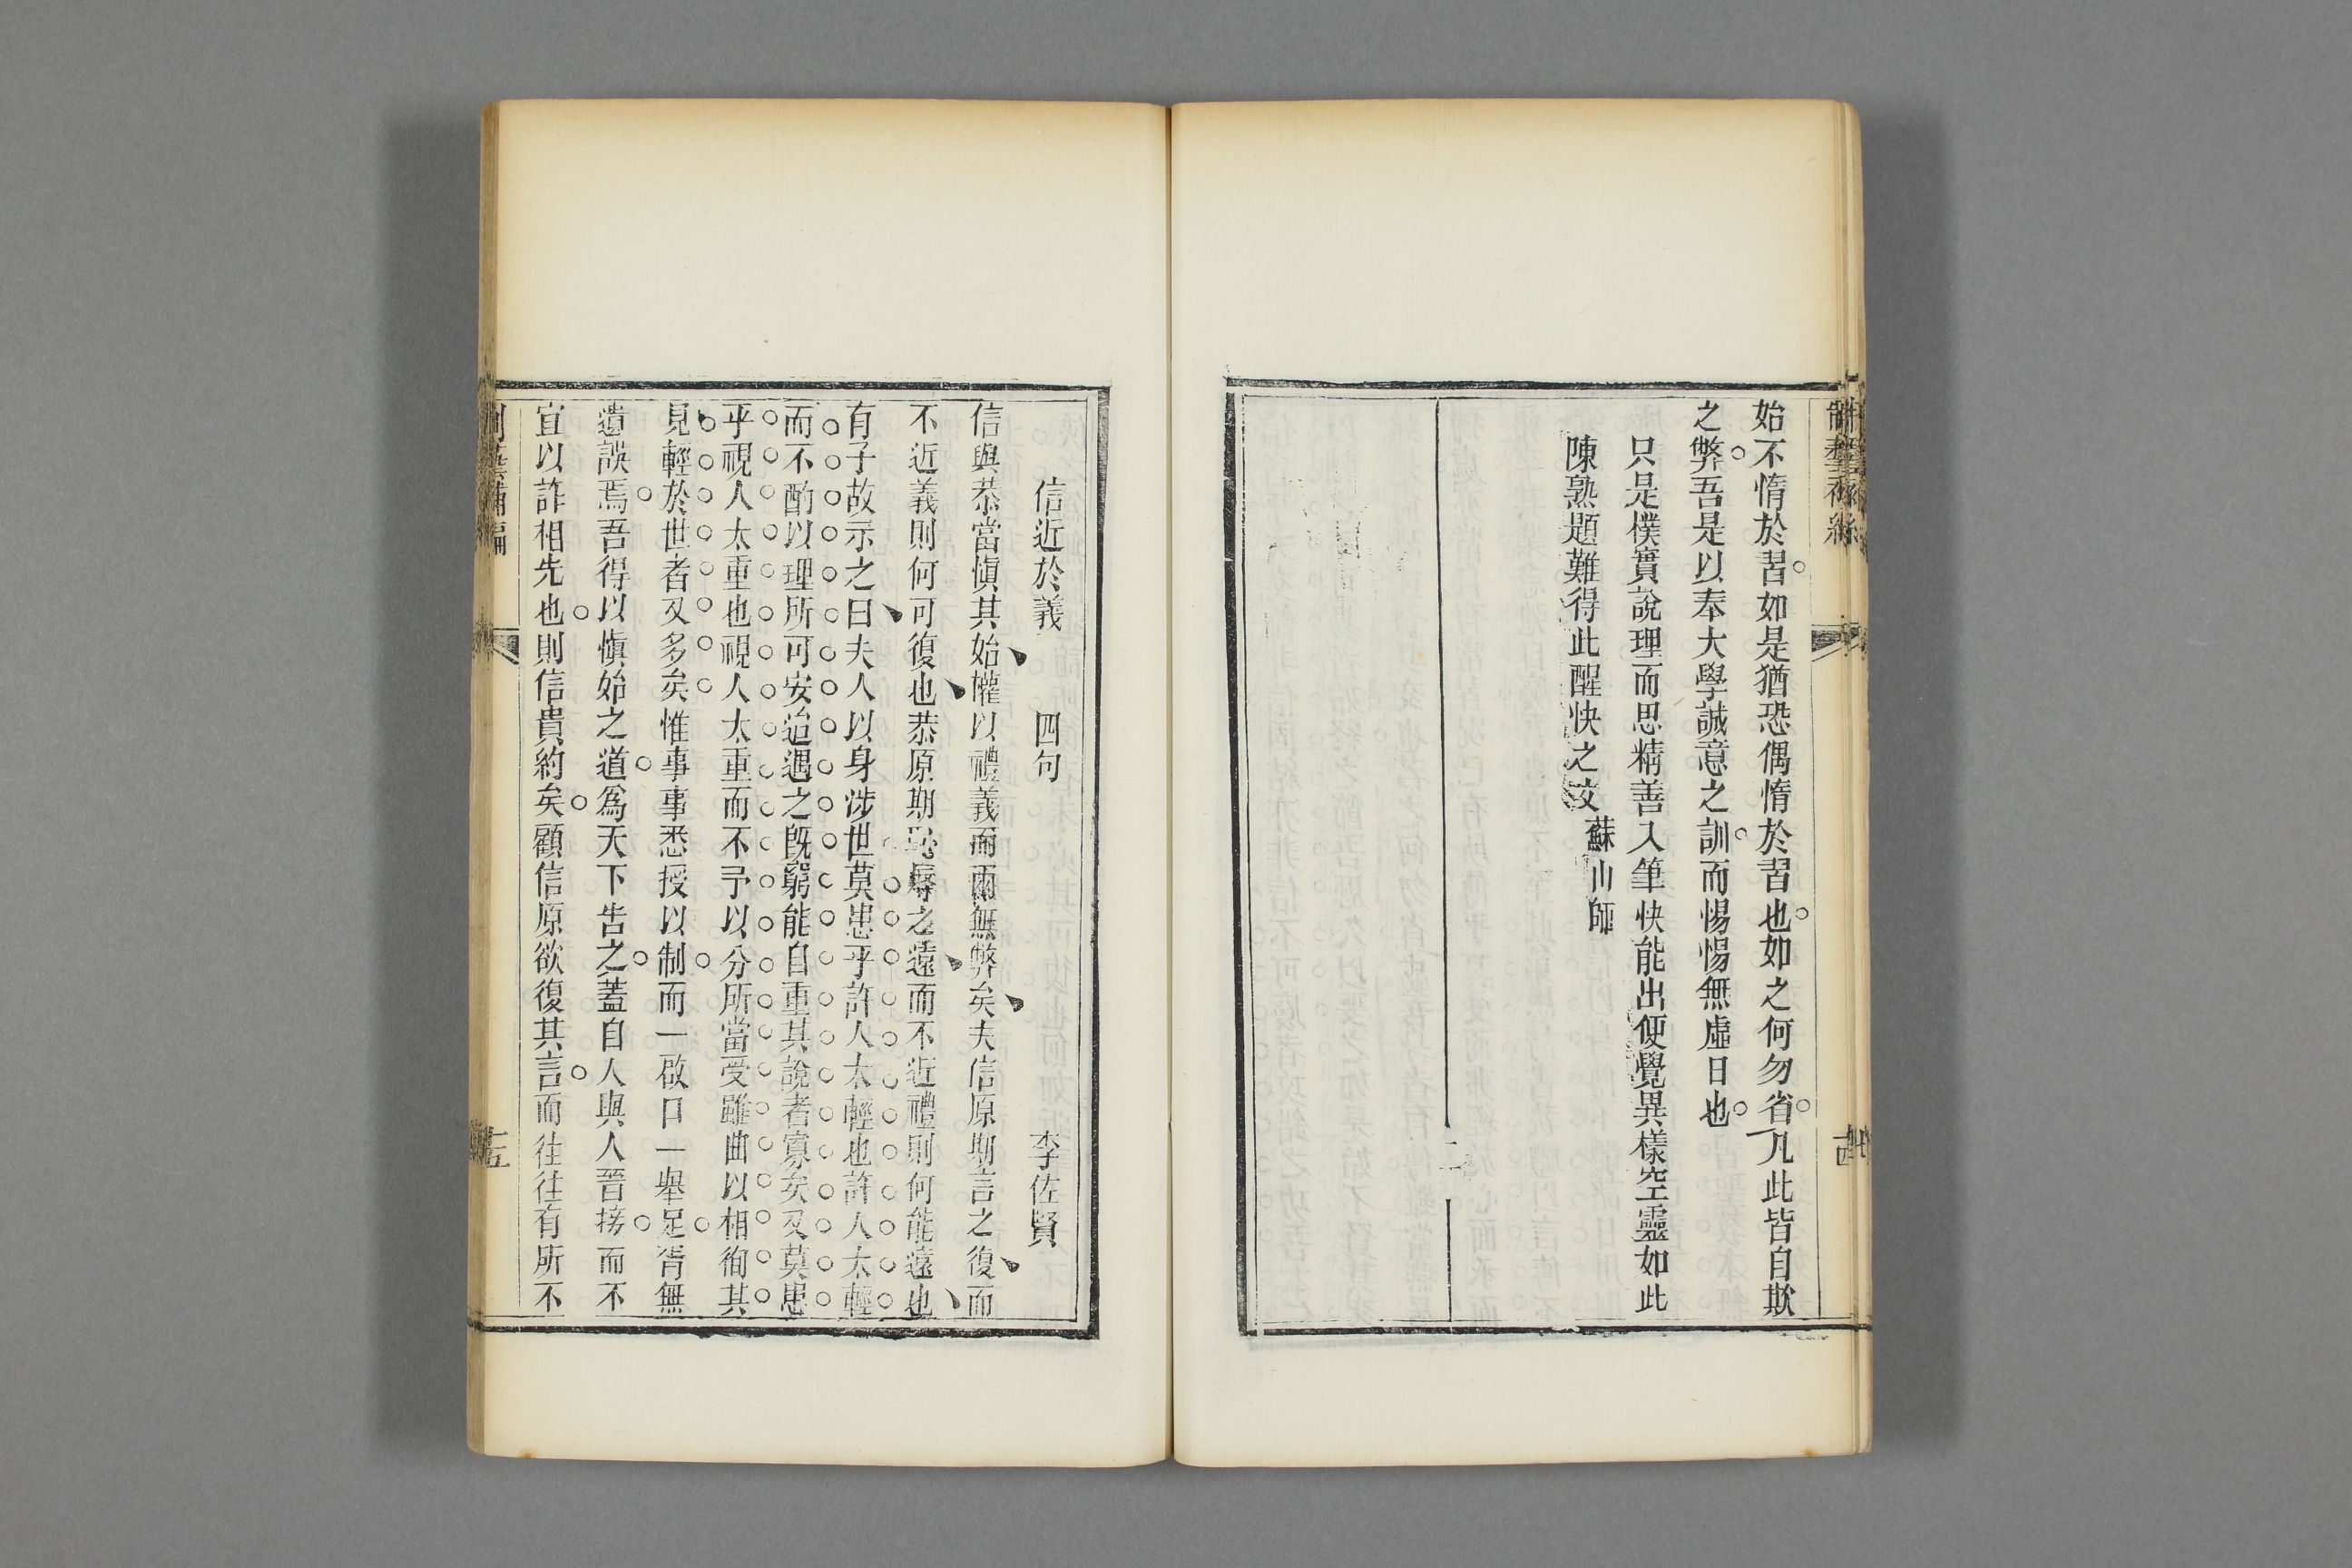 始不惰於習如是猶恐偶惰於習也如之何勿省凡此皆自欺
之弊吾是以奉大學誠意之訓而惕惕無虛日也
只是樸實說理而思精善入筆快能出便覺異樣空靈如此
陳熟題難得此醒快之文
蘇山師
信近於義 四句 李佐賢
信與恭當愼其始權以禮義而兩無弊矣夫信原期言之復而
不近義則何可復也恭原期恥辱之遠而不近禮則何能遠也
有子故示之曰夫人以身涉世莫患乎許人太輕也許人太輕
而不酌以理所可安迨遇之旣窮能自重其說者寡矣又莫患
乎視人太重也視人太重而不予以分所當受雖曲以相徇其
見輕於世者又多矣惟事事悉授以制而一啟口一舉足胥無
遺誤焉吾得以愼始之道爲天下告之蓋自人與人晉接而不
宜以詐相先也則信貴約矣顧信原欲復其言而往往有所不